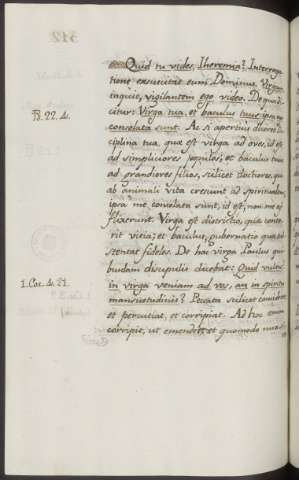 Quid tu vides, Iheremia? Interroga
tione excuscitat eum Dominus. Virgam
inquit, vigilantem ego video. De qua di
citur: Virga tua, et baculus tuus ipsa me
Ps. 22. 4.
consolata sunt. Ac si apertius diceret: Dis
ciplina tua, quæ est virga ad oves, id est
ad simpliciores populos, et baculus tuus
ad grandiores filios, scilicet doctiores, qui
ab animali vita crescunt ad spiritualem,
ipsa me consolata sunt, id est, non me af
flixerunt. Virga est districtio, quæ conte
rit vitia; et baculus, gubernatio quæ sus
tentat fideles. De hac virga Paulus qui
busdam discipulis dicebat: Quid vultis?
1. Cor. 4. 21.
in virga veniam ad vos, an in spiritu
mansuetudinis? Peccata scilicet
et percutiat, et corripiat. Ad hoc enim
corripit, ut emendet, et quomodo